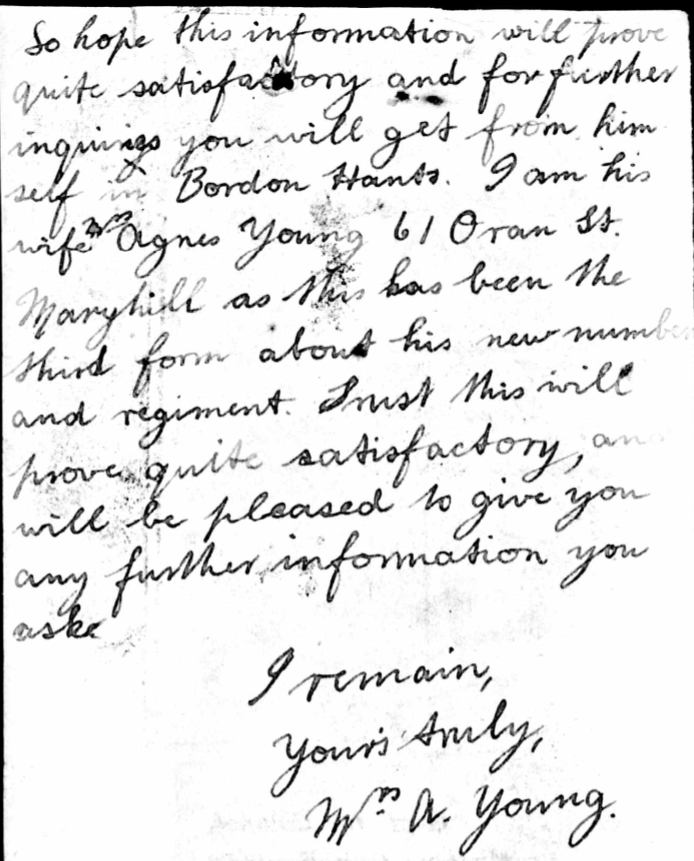 So hope this information will prove
quite satisfactory and for further
inquirys you will get from him
self in Bordon Hants. I am his
wife Mrs Agnes Young 61 Oran St.
Maryhill as this has been the
third form about his new number
and regiment. Trust this will
prove quite satisfactory, and
will be pleased to give you
any further information you
aske
I remain,
Your's truly,
Mrs A. Young.